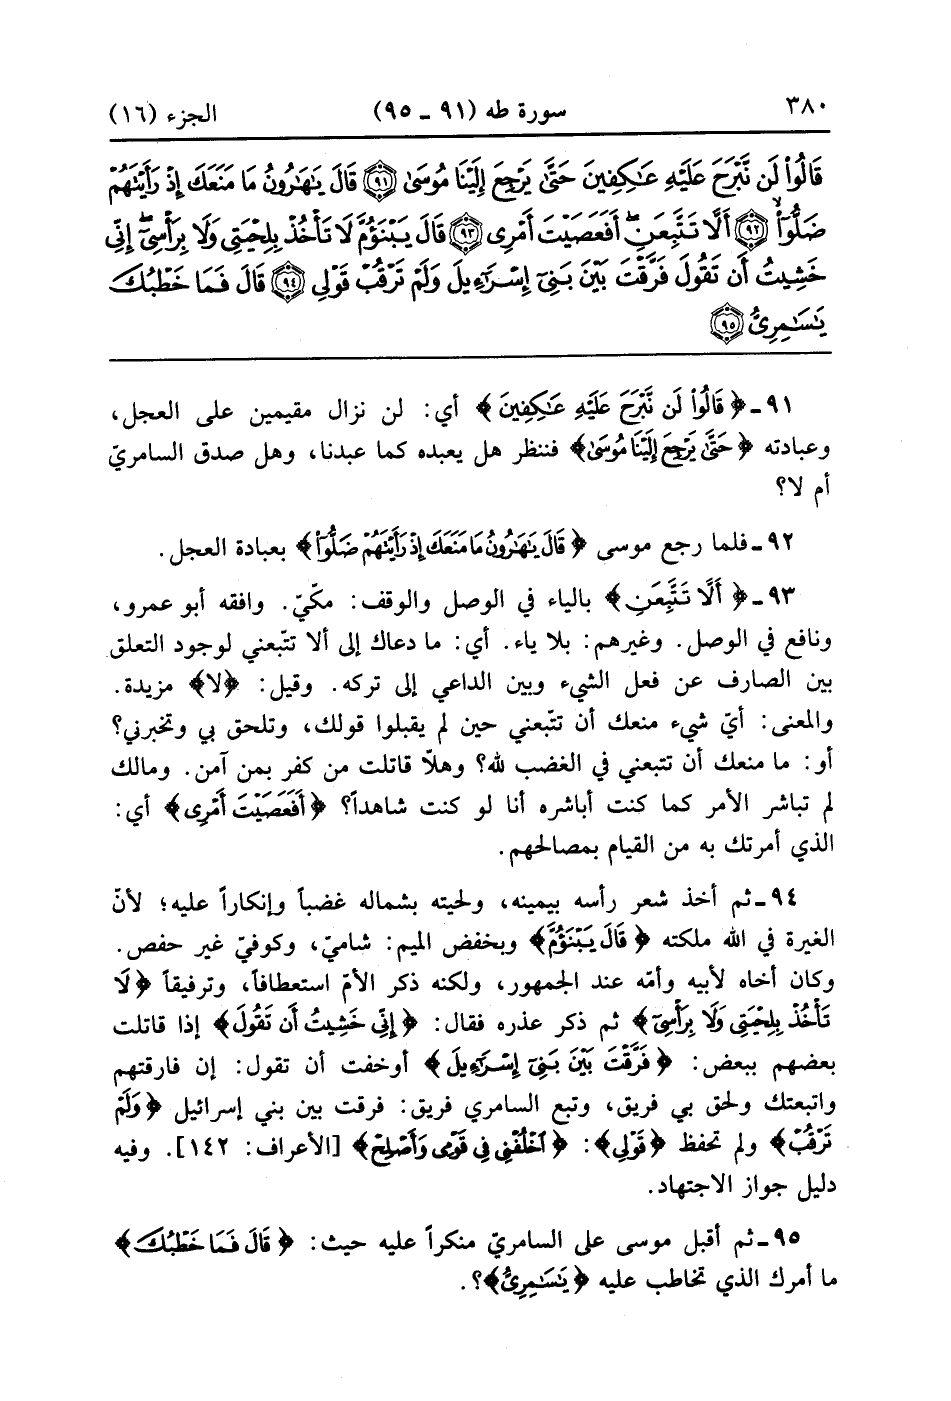 ٣٨٠ سورة طه (٩١ ـ ٩٥) الجزء (١٦)
قَالُوا۟ لَن نَّبْرَحَ عَلَيْهِ عَـٰكِفِينَ حَتَّىٰ يَرْجِعَ إِلَيْنَا مُوسَىٰ ﴿٩١﴾ قَالَ يَـٰهَـٰرُونُ مَا مَنَعَكَ إِذْ رَأَيْتَهُمْ
ضَلُّوٓا۟ ﴿٩٢﴾ أَلَّا تَتَّبِعَنِ ۖ أَفَعَصَيْتَ أَمْرِى ﴿٩٣﴾ قَالَ يَبْنَؤُمَّ لَا تَأْخُذْ بِلِحْيَتِى وَلَا بِرَأْسِىٓ ۖ إِنِّى
خَشِيتُ أَن تَقُولَ فَرَّقْتَ بَيْنَ بَنِىٓ إِسْرَٰٓءِيلَ وَلَمْ تَرْقُبْ قَوْلِى ﴿٩٤﴾ قَالَ فَمَا خَطْبُكَ
يَـٰسَـٰمِرِىُّ ﴿٩٥﴾
٩١ـ ﴿قَالُوا۟ لَن نَّبْرَحَ عَلَيْهِ عَـٰكِفِينَ﴾ أي: لن نزال مقيمين على العجل،
وعبادته ﴿حَتَّىٰ يَرْجِعَ إِلَيْنَا مُوسَىٰ﴾ فننظر هل يعبده كما عبدنا، وهل صدق السامريّ
أم لا؟
٩٢ـ فلما رجع موسى ﴿قَالَ يَـٰهَـٰرُونُ مَا مَنَعَكَ إِذْ رَأَيْتَهُمْ ضَلُّوٓا۟﴾ بعبادة العجل.
٩٣ـ ﴿أَلَّا تَتَّبِعَنِ﴾ بالياء في الوصل والوقف: مكّيّ. وافقه أبو عمرو،
ونافع في الوصل. وغيرهم: بلا ياء. أي: ما دعاك إلى ألا تتّبعني لوجود التعلق
بين الصارف عن فعل الشيء وبين الداعي إلى تركه. وقيل: ﴿لا﴾ مزيدة.
والمعنى: أيّ شيء منعك أن تتّبعني حين لم يقبلوا قولك، وتلحق بي وتخبرني؟
أو: ما منعك أن تتبعني في الغضب لله؟ وهلاّ قاتلت من كفر بمن آمن. ومالك
لم تباشر الأمر كما كنت أباشره أنا لو كنت شاهداً؟ ﴿أَفَعَصَيْتَ أَمْرِى﴾ أي:
الذي أمرتك به من القيام بمصالحهم.
٩٤ـ ثم أخذ شعر رأسه بيمينه، ولحيته بشماله غضباً وإنكاراً عليه؛ لأنّ
الغيرة في الله ملكته ﴿قَالَ يَبْنَؤُمَّ﴾ وبخفض الميم: شاميّ، وكوفيّ غير حفص.
وكان أخاه لأبيه وأمّه عند الجمهور، ولكنه ذكر الأمّ استعطافاً، وترفيقاً ﴿لَا
تَأْخُذْ بِلِحْيَتِى وَلَا بِرَأْسِىٓ﴾ ثم ذكر عذره فقال: ﴿إِنِّى خَشِيتُ أَن تَقُولَ﴾ إذا قاتلت
بعضهم ببعض: ﴿فَرَّقْتَ بَيْنَ بَنِىٓ إِسْرَٰٓءِيلَ﴾ أوخفت أن تقول: إن فارقتهم
واتبعتك ولحق بي فريق، وتبع السامري فريق: فرقت بين بني إسرائيل ﴿وَلَمْ
تَرْقُبْ﴾ ولم تحفظ ﴿قَوْلِى﴾: ﴿ٱخْلُفْنِى فِى قَوْمِى وَأَصْلِحْ﴾ [الأعراف: ١٤٢]. وفيه
دليل جواز الاجتهاد.
٩٥ـ ثم أقبل موسى على السامريّ منكراً عليه حيث: ﴿قَالَ فَمَا خَطْبُكَ﴾
ما أمرك الذي تخاطب عليه ﴿يَـٰسَـٰمِرِىُّ﴾؟.